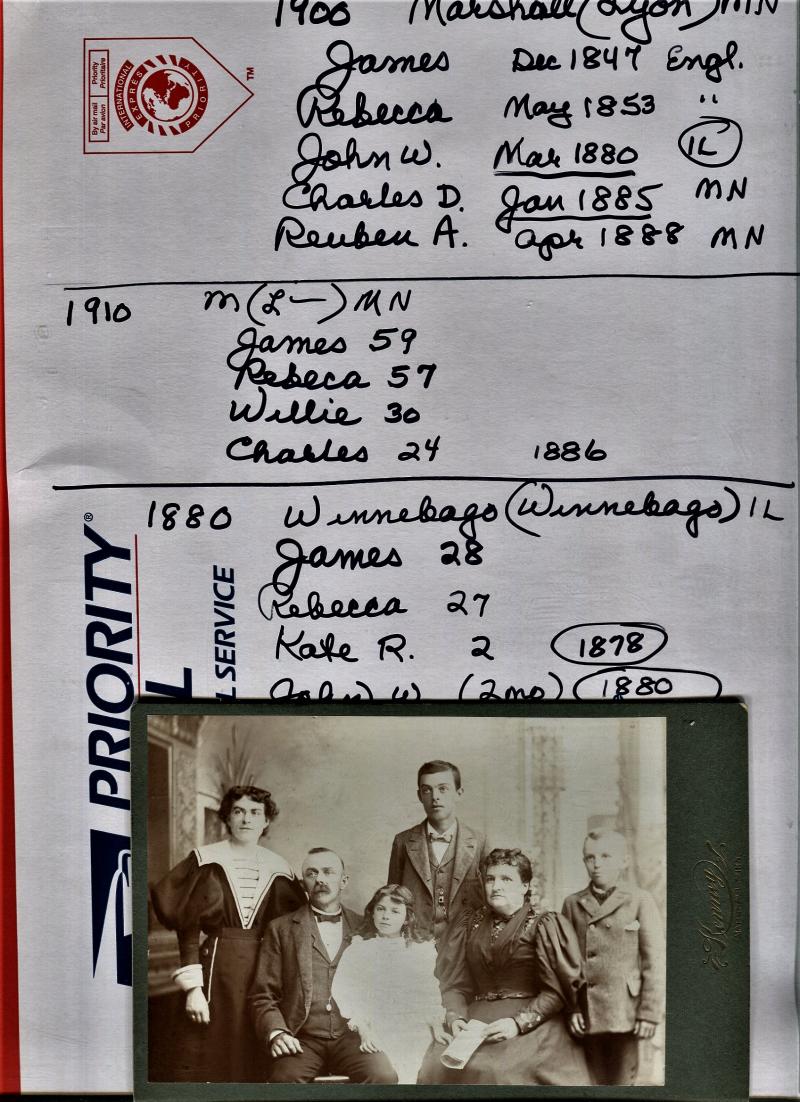 1900 Marshall (Lyon) MN
James Dec 1847 Engl.
Rebecca May 1853 "
John W. Mar 1880 IL
Charles D. Jan 1885 MN
Reuben A. Apr 1888 MN
1910 M (L—) MN
James 59
Rebeca 57
Willie 30
Charles 24 1886
1880 Winnebago (Winnebago) IL
James 28
Rebecca 27
Kate R. 2 1878
John W (2mo) 1880
By air mail
Par avion
Priority
Prioritaire
INTERNATIONAL
EXPRESS
PRIORITY
TM
PRIORITY®
L
L SERVICE